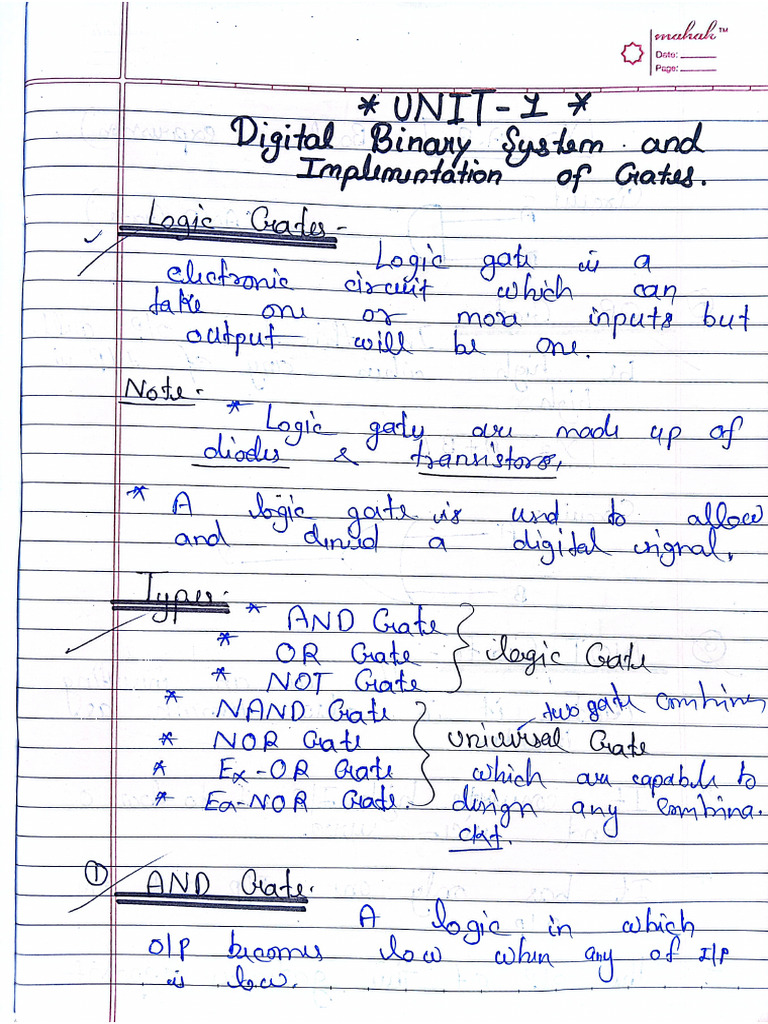 mahak™
Date:
Page:
* UNIT-1 *
Digital Binary System and
Implementation of Gates.
Logic Gates-
Logic gate is a
electronic circuit which can
take one or more inputs but
output will be one.
Note-
* Logic gates are made up of
diodes & transistors.
* A logic gate is used to allow
and denied a digital signal.
Types-
* AND Gate
* OR Gate
* NOT Gate
logic Gate
* NAND Gate
* NOR Gate
* Ex-OR Gate
* Ex-NOR Gate.
two gate combines
universal Gate
which are capable to
design any combina.
ckt.
① AND Gate.
A logic in which
O/P becomes low when any of I/P
is low.